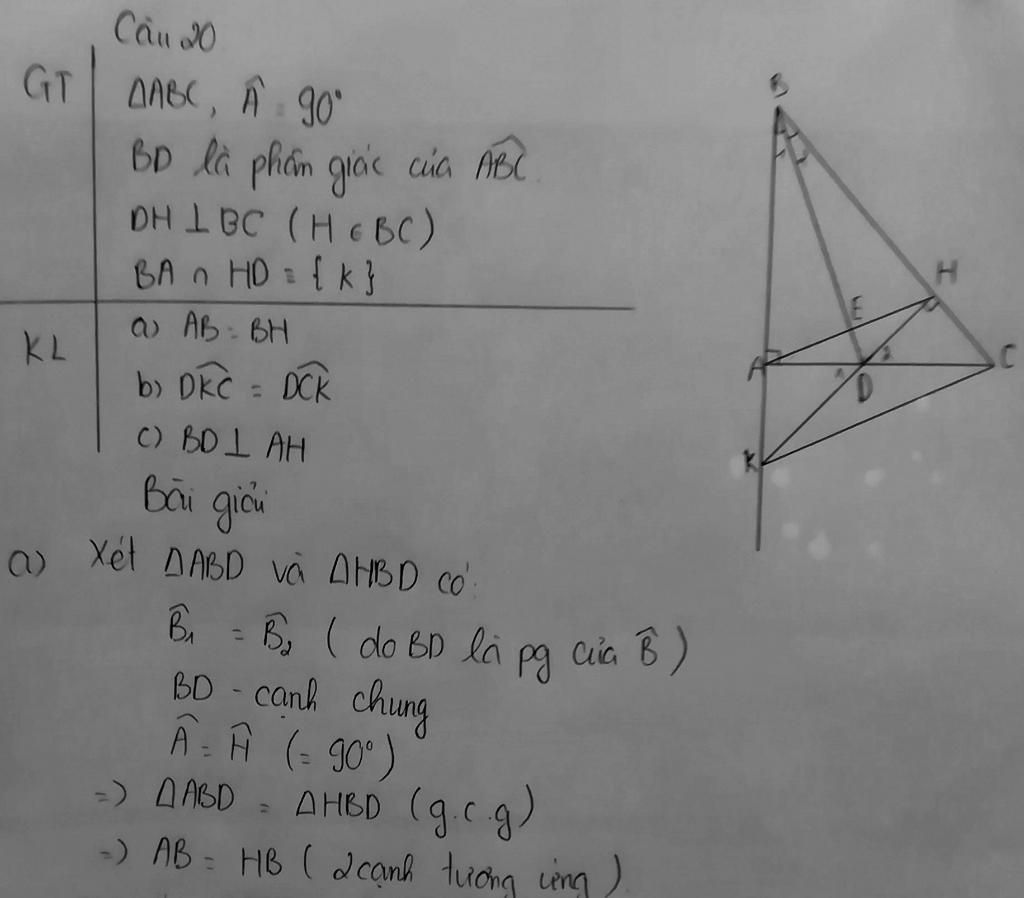 Câu 20
GT
ΔABC, Â = 90°
BD là phân giác của ABC̑.
DH ⊥ BC (H ∈ BC)
BA ∩ HD = {K}
KL
a) AB = BH
b) DKC̑ = DCK̑
c) BD ⊥ AH
Bài giải
a) Xét ΔABD và ΔHBD có:
B̂₁ = B̂₂ (do BD là pg của B̂)
BD - cạnh chung
Â = Ĥ (= 90°)
=) ΔABD = ΔHBD (g.c.g)
=) AB = HB (2 cạnh tương ứng)
B
H
E
A
1
2
D
C
K